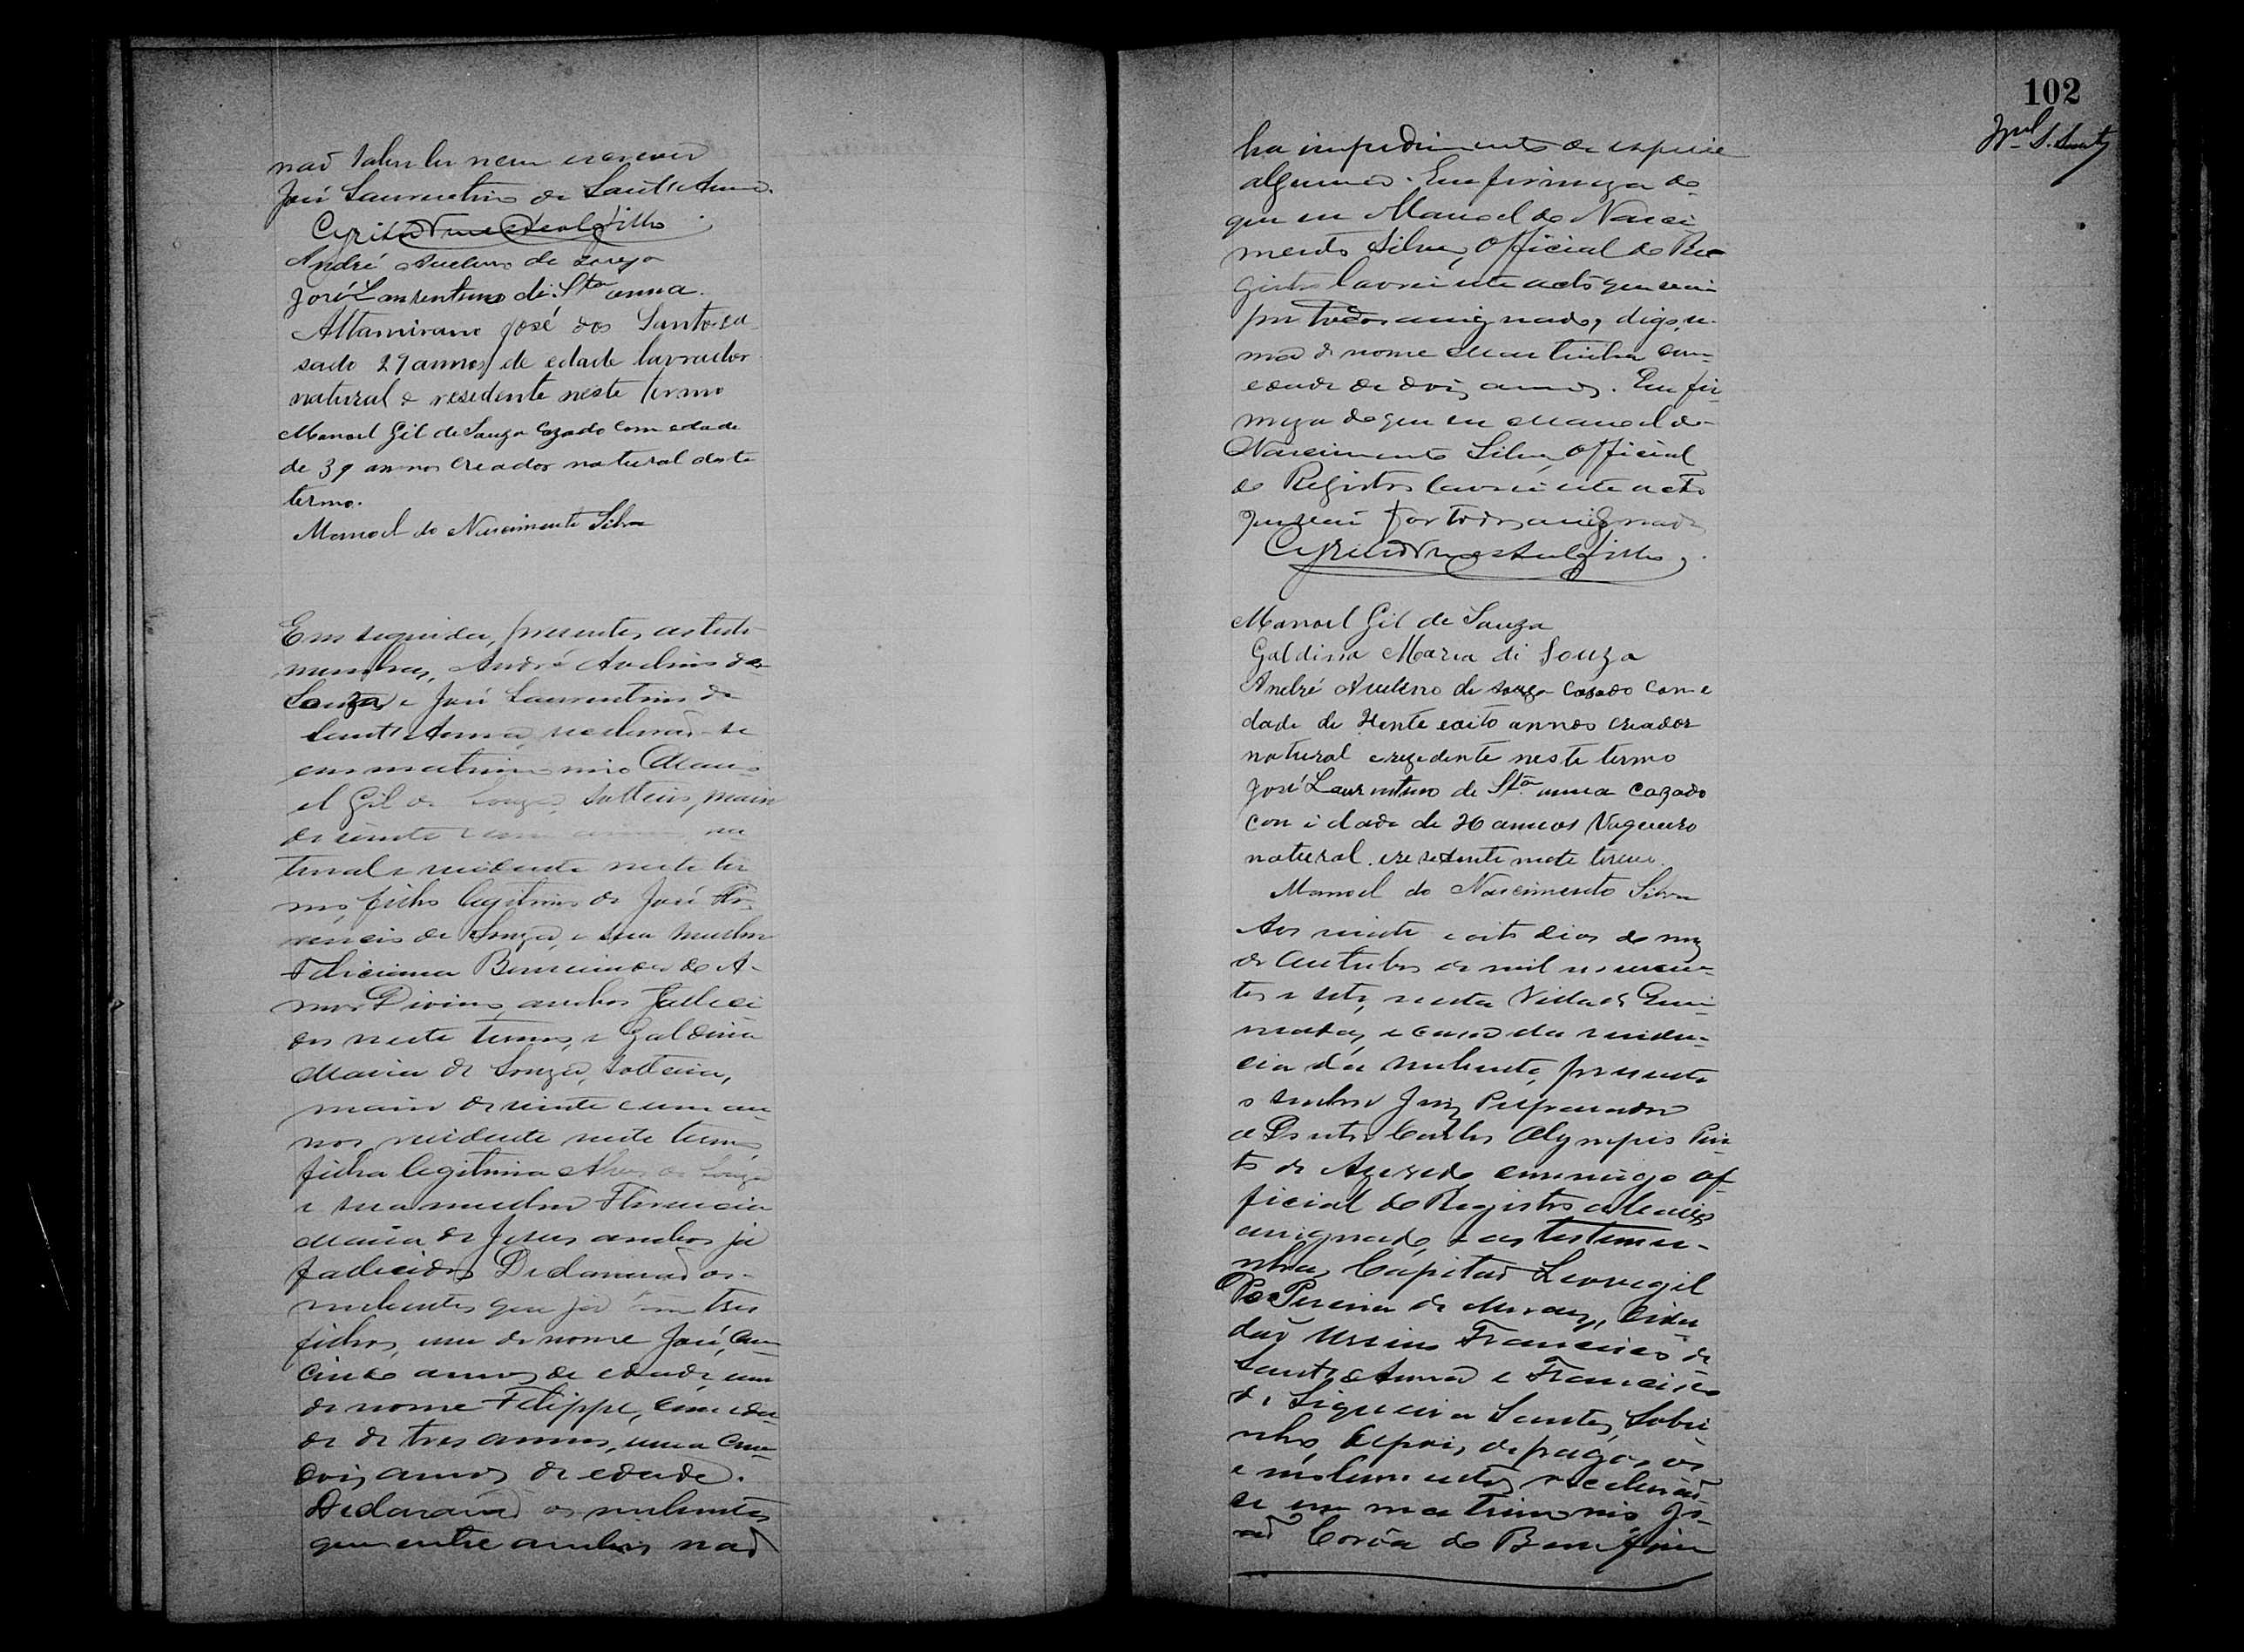 não saber ler nem escrever
José Laurentino de Sant'Anna.
Cyrillo Nunes Leal filho
André Avelino de Souza
José Laurentino di Sta anna.
Altamirano José dos Santos ca
sado 29 annos de edade lavrador
natural e residente neste termo
Manoel Gil de Souza Cazado Com edade
de 39 annos Creador natural deste
termo.
Manoel do Nascimento Silva
Em seguida, presentes as teste
munhas, André Avelino de
Souza e José Laurentino de
Sant'Anna, receberão-se
em matrimonio Mano-
el Gil de Souza, solteiro, maior
de vinte e um annos, na
tural e residente neste ter
mo, filho legitimo de José
de Souza, e sua mulher
Feliciana do A-
mor Divino, ambos falleci
dos neste termo, e Galdina
Maria de Souza, solteira,
maior de vinte e um an
nos, residente neste termo,
filha legitima Alves de Souza
e sua mulher Florencia
Maria de Jesus ambos já
fallecidos. Declararão os
nubentes que já tem tres
filhos, um de nome José, com
cinco annos de edade, um
de nome Felippe, com eda
de de tres annos, uma com
dois annos de edade.
Declararão os nubentes
que entre ambos não
102
ha impedimento de especie
alguma. Em firmeza do
que eu Manoel do Nasci
mento Silva, Official do Re
gistro lavrei este acto que vai
por todos assignado, digo, u-
ma de nome Martinha com
edade de dois annos. Em fir
meza do que eu Manoel do
Nascimento Silva, Official
do Registro lavrei este acto
que vai por todos assignado
Cyrillo Nunes Leal filho
Manoel Gil de Souza
Galdina Maria di Souza
André Avelino de Souza Casado Com e
dade de trenta e oito annos creador
natural e rezedente neste termo
José Laurentino de Sta anna Cazado
con idade de 26 annos Vaqueiro
natural e resedente neste termo.
Manoel do Nascimento Silva
Aos vinte e oito dias do mez
de Outubro de mil novecen-
tos e sete, nesta Villa de Quei
madas, e casa da residen-
cia da nubente, presente
o senhor Juiz Preparador
o Doutor Carlos Olympio Pin
to de Azevedo commigo Of
ficial do Registro abaixo
assignado e as testemu-
nhas Capitão Leovegil
do Pereira de Moraes, Cida
dão Ursino Francisco de
Sant'Anna e Francisco
de Siqueira Santos Sobri
nho, depois de pagos os
emolumentos, receberão-
se em matrimonio, Jo-
ão Corrêa do Bomfim